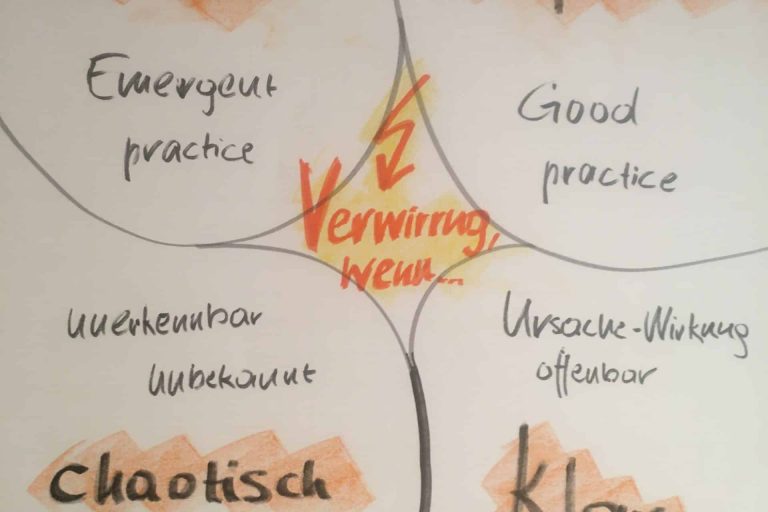 Emergent
practice
Good
practice
Verwirrug,
wenn...
unerkennbar
unbekannt
Ursache-Wirkung
offenbar
chaotisch
Klar